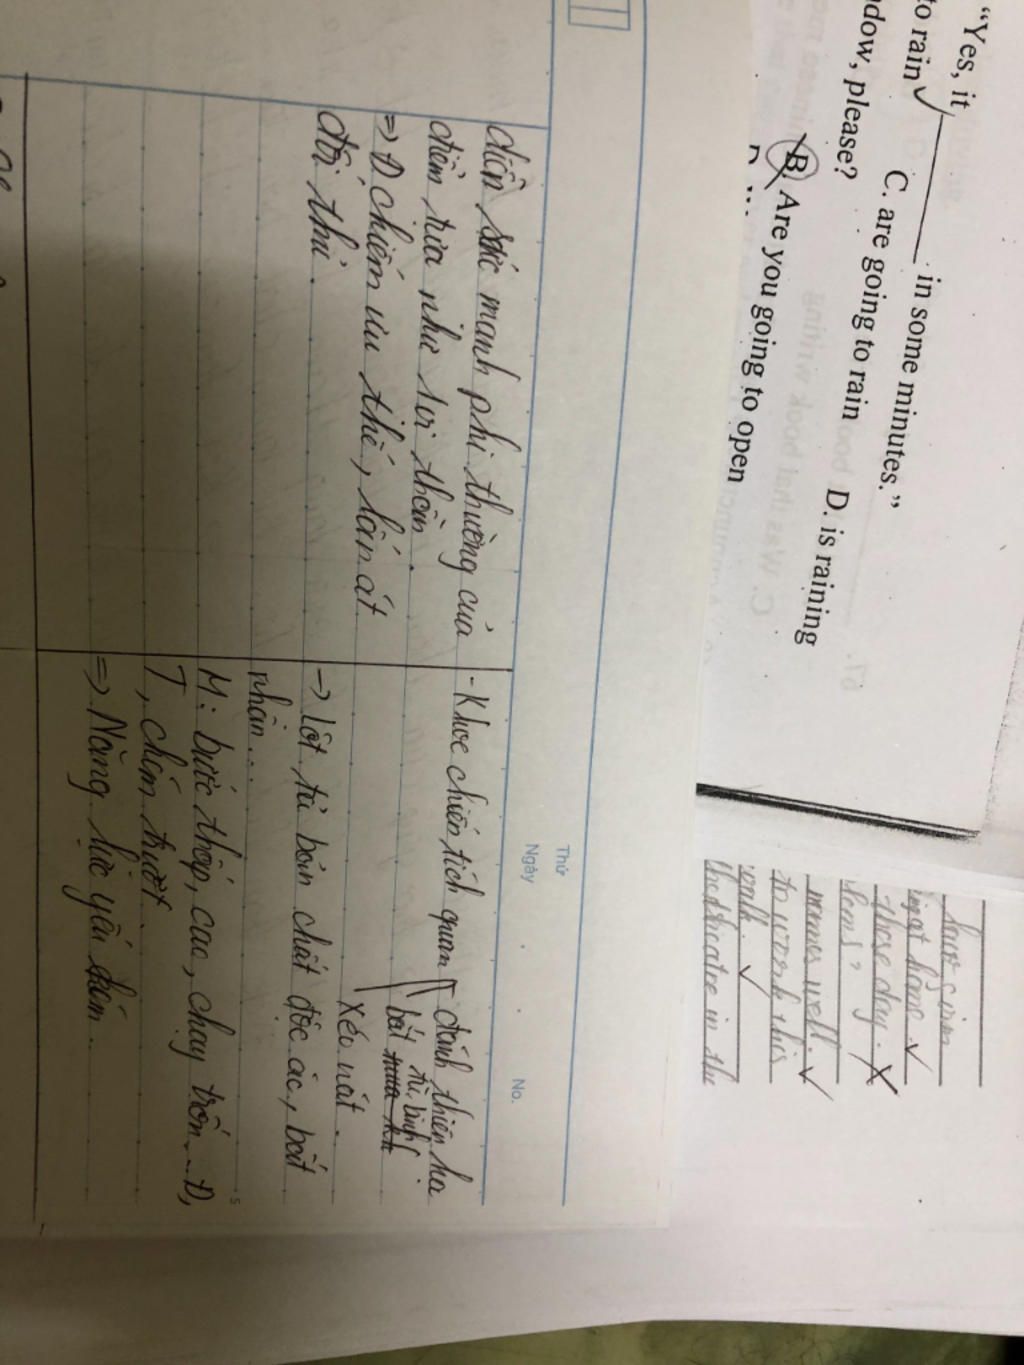 “Yes, it ________ in some minutes.”
to rain ✓ C. are going to rain D. is raining
dow, please?
B. Are you going to open
have
ing at home ✓
these day. X
tems?
mmes well. ✓
to work this
walk. ✓
the theatre in the
Thứ
Ngày . . No.
diễn sức mạnh phi thường của
điểm tựa như lời thần.
=> Đ chiếm ưu thế, lấn át
đối thủ.
- Khoe chiến tích quan đánh thiên hạ
bắt tù binh
xéo nát.
-> lột tả bản chất độc ác, bất
nhân...
M: bước thấp, cao, chạy trốn... Đ,
T, chém trượt
=> Năng lực yếu kém.
5